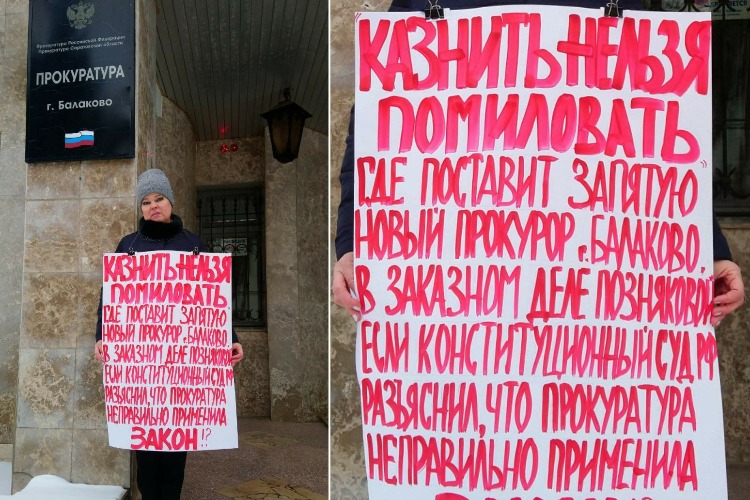 Прокуратура Российской Федерации
Прокуратура Саратовской области
ПРОКУРАТУРА
г. Балаково
КАЗНИТЬ-НЕЛЬЗЯ
ПОМИЛОВАТЬ
ГДЕ ПОСТАВИТ ЗАПЯТУЮ
НОВЫЙ ПРОКУРОР г. БАЛАКОВО,
В ЗАКАЗНОМ ДЕЛЕ ПОЗНЯКОВОЙ
ЕСЛИ КОНСТИТУЦИОННЫЙ СУД РФ
РАЗЪЯСНИЛ, ЧТО ПРОКУРАТУРА
НЕПРАВИЛЬНО ПРИМЕНИЛА
ЗАКОН!?
"КАЗНИТЬ-НЕЛЬЗЯ
ПОМИЛОВАТЬ"
ГДЕ ПОСТАВИТ ЗАПЯТУЮ
НОВЫЙ ПРОКУРОР г. БАЛАКОВО,
В ЗАКАЗНОМ ДЕЛЕ ПОЗНЯКОВОЙ
ЕСЛИ КОНСТИТУЦИОННЫЙ СУД РФ
РАЗЪЯСНИЛ, ЧТО ПРОКУРАТУРА
НЕПРАВИЛЬНО ПРИМЕНИЛА